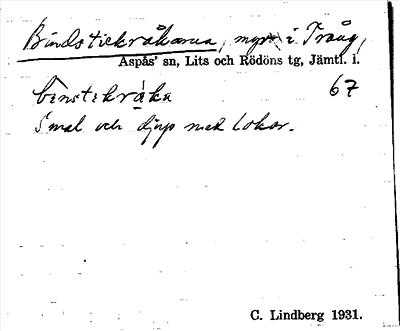 Bindstickråkarna, myr i Trång,
Aspås' sn, Lits och Rödöns tg, Jämtl. i.
binstikråka 67
Smal och djup med lokar.
C. Lindberg 1931.